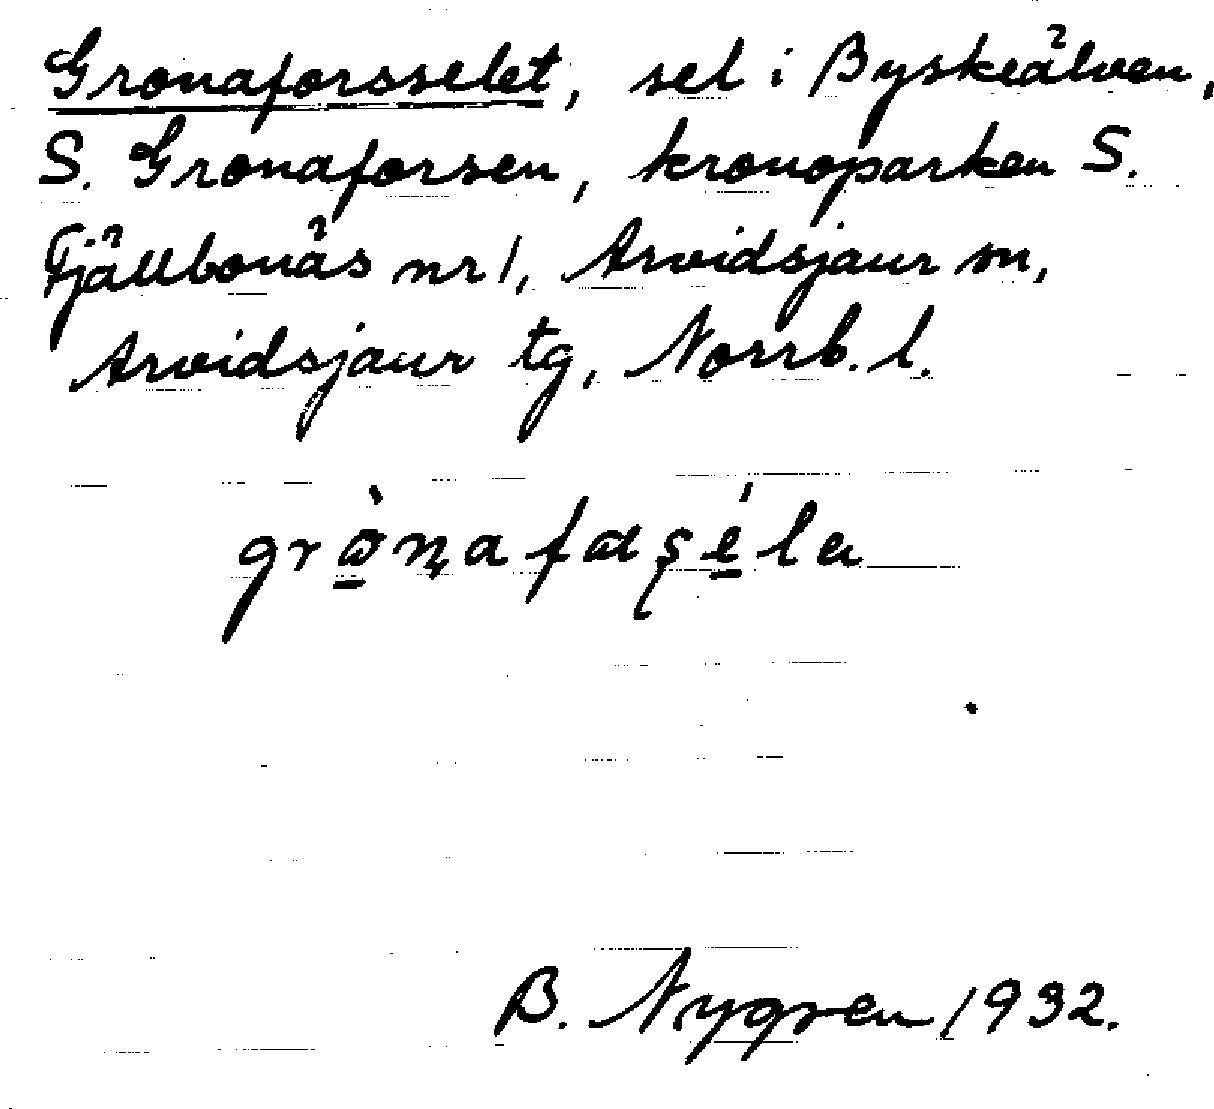 Gronaforsselet, sel i Byskeälven,
S. Gronaforsen, kronoparken S.
Fjällbonäs nr 1, Arvidsjaur sn,
Arvidsjaur tg, Norrb. l.
B. Nygren 1932.